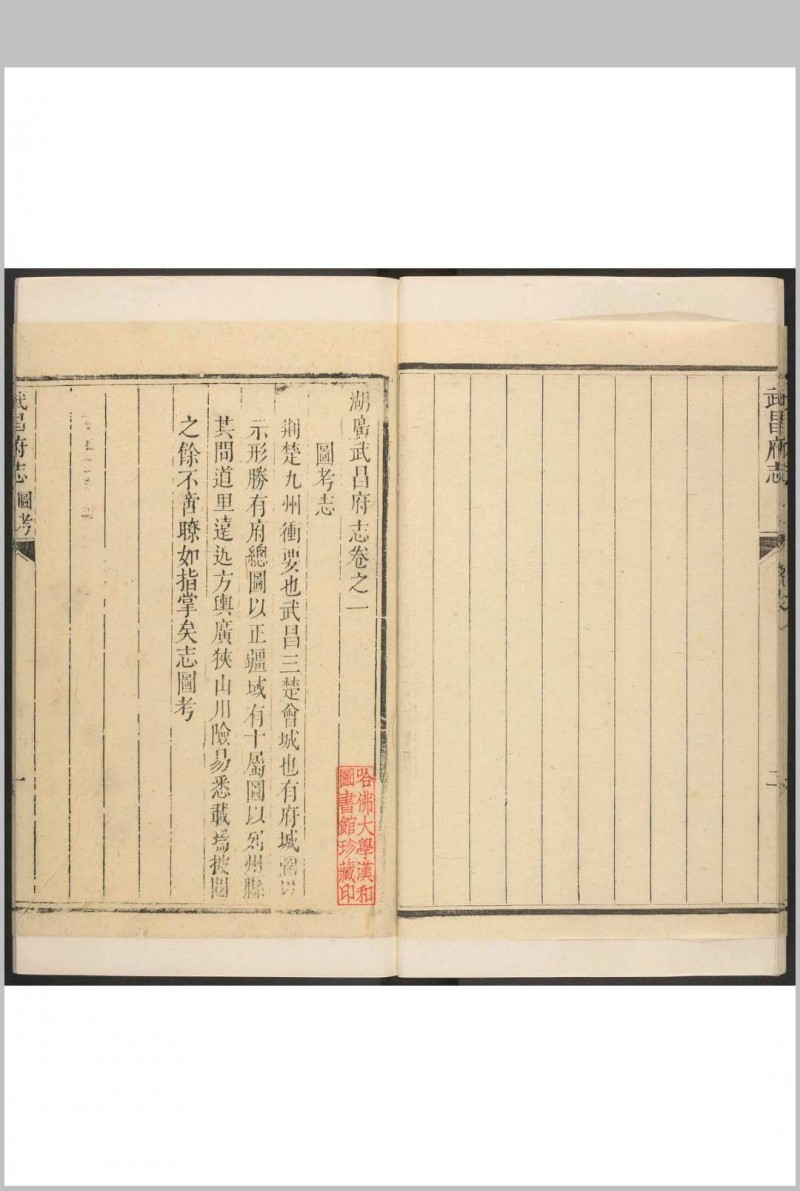 武昌府志
二
湖廣武昌府志卷之一
圖考志
荆楚九州衝要也武昌三楚會城也有府城圖以
示形勝有府總圖以正疆域有十屬圖以別州縣
其間道里達迩方輿廣狹山川險易悉載焉披閱
之餘不啻瞭如指掌矣志圖考
哈佛大學漢和
圖書館珍藏印
武昌府志
圖考
一